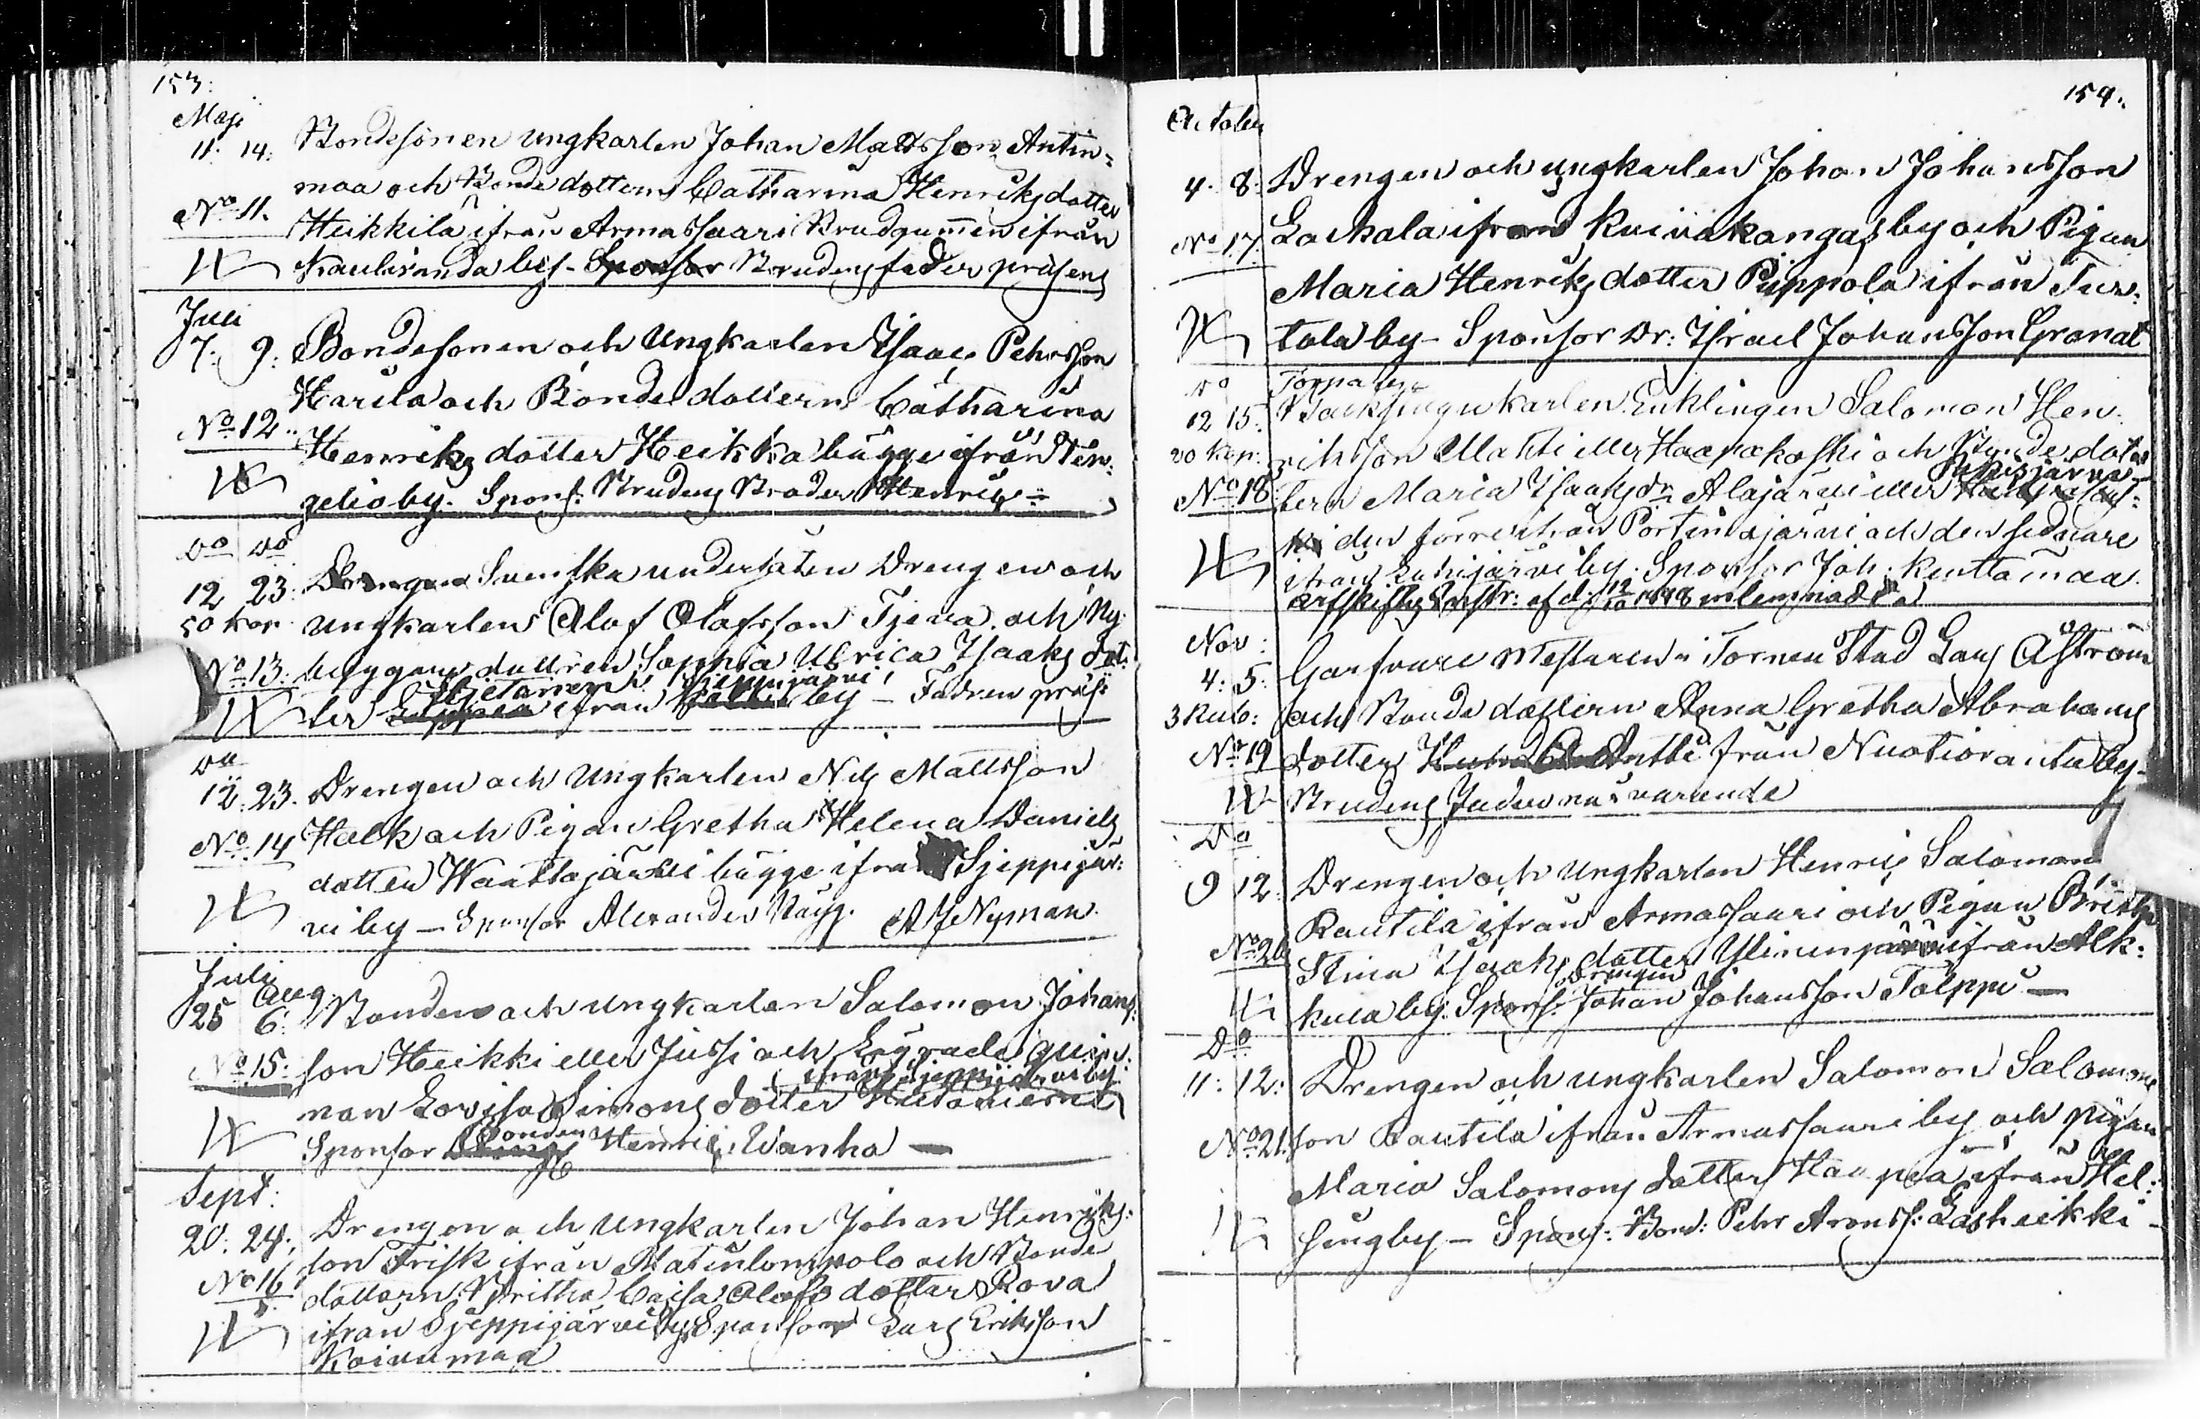 153.
Maji
11. 14. Bondesonen ungkarlen Johan Mattsson Antin=
maa och Bonde dottern Catharina Henriksdotter
No 11. Heikkilä ifrån Armassaari Brudgummen ifrån
Kauliranda by - Sponsor Brudens fader præsens
Juli
7. 9. Bondesonen och Ungkarlen Isaac Pehrsson
Harila och Bonde dottern Catharina
No 12. Henriks dotter Heikka bägge ifrån Ten:
geliö by. Spons: Brudens Broder Henric
Do Do
12 23. Svenska undersåten Drengen och
50 kop. ungkarlen Olof Olofsson Tjera och Ny
No 13. byggare dottren Sophia Ulrica Isaaks dot:
ter ifrån by - Fadren præs:
Do
12. 23. Drengen och Ungkarlen Nils Mattsson
No 14 Halk och Pigan Gretha Helena Daniels
dotter Waattojärvi bägge ifrån Sjeppijär:
vi by - Sponsor Alexander A J Nyman
Juli Aug
25 6. Bonden och ungkarlen Salomon Johans
No 15. son Heikki eller Jussi och Lägrade qvin
ifrån Sjeppijärvi by
nan Lovisa Simons dotter
Sponsor Bonden Henric Wanha -
Sept:
20. 24. Drengen och ungkarlen Johan Henriks:
son Frisk ifrån Matinlompolo och Bonde
No 16 dottern Britha Caisa Olofs dotter Rova
ifrån Sjeppijärvi by Sponsor Lars Eriksson
Koivumaa
154.
October
4. 8. Drengen och ungkarlen Johan Johansson
No 17. Laikala ifrån Kuivakangas by och Pigan
Maria Henriks dotter Piippola ifrån Tur:
tola by - Sponsor Dr: Israel Johansson Granat
Do
12 15. Enklingen Salomon Hen
20 kop. riksson Matti eller Haapakoski och Bonde dot
No 18. tern Maria Isaaks dr Alajärvi eller
den förre ifrån Portimojärvi och den sednare
ifrån by. Sponsor Joh: Kenttämaa.
Arfskiftes Instr: af d: 12/10 1848
Nov:
4. 5. Garfvare Mestaren i Torneå Stad Lars Åström
3 Rub: och Bonde dottern Anna Gretha Abrahams
No 19 dotter Antti från Nuotioranta by -
Brudens Fader närvarande
Do
9 12. Drengen och Ungkarlen Henric Salomon
Rautila ifrån Armassaari och Pigan Britha
No 20 Stina Isaaks dotter Ylinenpää ifrån Alk:
Drengen
kula by. Spons: Johan Johansson Tolppi -
Do
11. 12. Drengen och ungkarlen Salomon Salomons
No 21. son Rautila ifrån Armassaari by och pigan
Maria Salomons dotter Haapa ifrån Hel:
sing by - Spons: Bond: Pehr Aronss: Lasheikki -